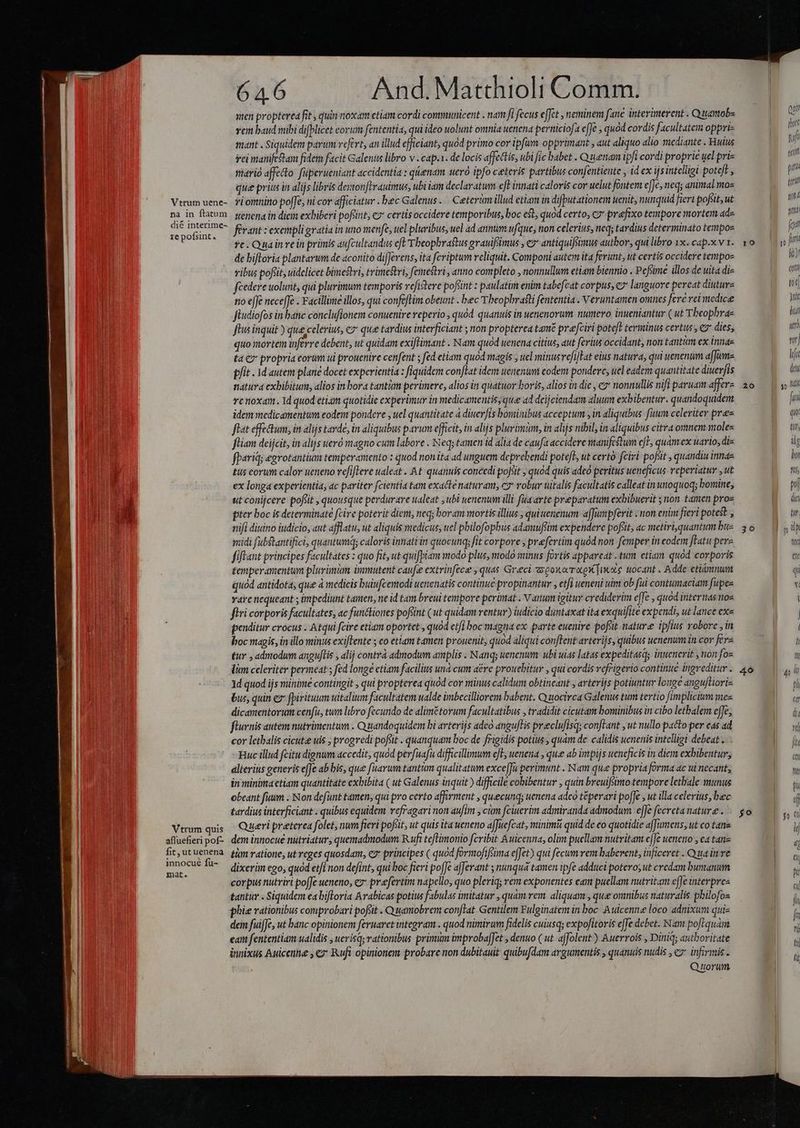 646 And. Matthioli Comm.
men propterea fit, quin noxam etiam cordi communicent. nam si secus esset, neminem sane interimerent. Quamob=
rem haud mihi displicet eorum sententia, qui ideo uolunt omnia uenena perniciosa esse, quòd cordis facultatem oppri=
mant. Siquidem parum refert, an illud efficiant, quòd primo cor ipsum opprimant, aut aliquo alio mediante. Huius
rei manifestam fidem facit Galenus libro v. cap. 1. de locis affectis, ubi sic habet. Quænam ipsi cordi proprie uel pri=
mario affecto superueniant accidentia: quænam uerò ipso cæteris partibus consentiente, id ex ijs intelligi potest,
que prius in alijs libris demonstrauimus, ubi iam declaratum est innati caloris cor uelut fontem esse, neq; animal mo=
Vtrum uene= ri omnino posse, ni cor afficiatur. hæc Galenus. Cæterùm illud etiam in disputationem uenit, nunquid fieri possit, ut
na in statum uenena in diem exhiberi possint, & certis occidere temporibus, hoc est, quòd certo, & præfixo tempore mortem ad=
dié interime= ferant: exempli gratia in uno mense, uel pluribus, uel ad annum usque, non celerius, neq; tardius determinato tempo=
re possint. re. Qua in re in primis auscultandus est Theophrastus grauissimus, & antiquissimus author, qui libro IX. cap. XVI. 10
de historia plantarum de aconito disserens, ita scriptum reliquit. Componi autem ita ferunt, ut certis occidere tempo=
ribus possit, uidelicet bimestri, trimestri, semestri, anno completo, nonnullum etiam biennio. Pessimè illos de uita di=
scedere uolunt, qui plurimum temporis resistere possint: paulatim enim tabescat corpus, & languore pereat diutur=
no esse necesse. Facillime illos, qui confestim obeunt. hæc Theophrasti sententia. Veruntamen omnes ferè rei medicæ
studiosos in hanc conclusionem conuenire reperio, quòd quanuis in uenenorum numero inueniantur (ut Theophra=
stus inquit) quæ celerius, & quæ tardius interficiant; non propterea tamē præsciri potest terminus certus, & dies,
quo mortem inferre debent, ut quidam existimant. Nam quòd uenena citius, aut serius occidant, non tantùm ex inna=
ta & propria eorum ui prouenire censent; sed etiam quòd magis, uel minus resistat eius natura, qui uenenum assum=
psit. Id autem planè docet experientia: siquidem constat idem uenenum eodem pondere, uel eadem quantitate diuersis
natura exhibitum, alios in hora tantùm perimere, alios in quatuor horis, alios in die, & nonnullis nisi paruam affer= 20
re noxam. Id quod etiam quotidie experimur in medicamentis, quæ ad deijciendam aluum exhibentur. quandoquidem
idem medicamentum eodem pondere, uel quantitate à diuersis hominibus acceptum, in aliquibus suum celeriter præ=
stat effectum, in alijs tardè, in aliquibus parum efficit, in alijs plurimùm, in alijs nihil, in aliquibus citra omnem mole=
stiam deijcit, in alijs uerò magno cum labore. Neq; tamen id alia de causa accidere manifestum est, quàm ex uario, di=
sparíq; ægrotantium temperamento: quod non ita ad unguem deprehendi potest, ut certò sciri possit, quandiu inna=
tus eorum calor ueneno resistere ualeat. At quanuis concedi possit, quòd quis adeò peritus ueneficus reperiatur, ut
ex longa experientia, ac pariter scientia tam exactè naturam, & robur uitalis facultatis calleat in unoquoq; homine,
ut conijcere possit, quousque perdurare ualeat, ubi uenenum illi sua arte præparatum exhibuerit; non tamen pro=
pter hoc is determinatè scire poterit diem, neq; horam mortis illius, qui uenenum assumpserit. non enim fieri potest,
nisi diuino iudicio, aut afflatu, ut aliquis medicus, uel philosophus adamussim expendere possit, ac metiri, quantum hu= 30
midi substantifici, quantumq; caloris innati in quocunq; sit corpore, præsertim quòd non semper in eodem statu per=
sistant principes facultates: quo fit, ut quispiam modò plus, modò minus fortis appareat. tum etiam quòd corporis
temperamentum plurimùm immutent causæ extrinsecæ, quas Græci προκαταρκτικὰς uocant. Adde etiamnum
quòd antidota, quæ à medicis huiuscemodi uenenatis continuè propinantur, etsi ueneni uim ob sui contumaciam supe=
rare nequeant; impediunt tamen, ne id tam breui tempore perimat. Vanum igitur crediderim esse, quòd internas no=
stri corporis facultates, ac functiones possint (ut quidam rentur) iudicio duntaxat ita exquisitè expendi, ut lance ex=
penditur crocus. Atqui scire etiam oportet, quòd etsi hoc magna ex parte euenire possit naturæ ipsius robore, in
hoc magis, in illo minus existente; eo etiam tamen prouenit, quòd aliqui constent arterijs, quibus uenenum in cor fer=
tur, admodum angustis, alij contrà admodum amplis. Nanq; uenenum ubi uias latas expeditasq; inuenerit, non so=
lùm celeriter permeat; sed longè etiam facilius unà cum aëre prouehitur, qui cordis refrigerio continuè ingreditur. 40
Id quod ijs minimè contingit, qui propterea quòd cor minus calidum obtineant, arterijs potiuntur longè angustiori=
bus, quin & spirituum uitalium facultatem ualde imbecilliorem habent. Quocirca Galenus tum tertio simplicium me=
dicamentorum censu, tum libro secundo de alimētorum facultatibus, tradidit cicutam hominibus in cibo lethalem esse,
sturnis autem nutrimentum. Quandoquidem hi arterijs adeò angustis præclusisq; constant, ut nullo pacto per eas ad
cor lethalis cicutæ uis, progredi possit. quanquam hoc de frigidis potius, quàm de calidis uenenis intelligi debeat.
Huc illud scitu dignum accedit, quòd persuasu difficillimum est, uenena, quæ ab impijs ueneficis in diem exhibentur,
alterius generis esse ab his, quæ suarum tantùm qualitatum excessu perimunt. Nam quæ propria forma ac ui necant,
in minima etiam quantitate exhibita (ut Galenus inquit) difficilè cohibentur, quin breuissimo tempore lethale munus
obeant suum. Non desunt tamen, qui pro certo affirment, quæcunq; uenena adeò tēperari posse, ut illa celerius, hæc
tardius interficiant. quibus equidem refragari non ausim, cùm sciuerim admiranda admodum esse secreta naturæ. 50
Vtrum quis Quæri præterea solet, num fieri possit, ut quis ita ueneno assuescat, minimā quid de eo quotidie assumens, ut eo tan=
assuefieri pos= dem innocuè nutriatur, quemadmodum Rufi testimonio scribit Auicenna, olim puellam nutritam esse ueneno, ea tan=
sit, ut uenena tùm ratione, ut reges quosdam, & principes (quòd formosissima esset) qui secum rem haberent, inficeret. Qua in re
innocuè su= dixerim ego, quòd etsi non desint, qui hoc fieri posse asserant; nunquā tamen ipse adduci potero, ut credam humanum
mat. corpus nutriri posse ueneno, & præsertim napello, quo pleriq; rem exponentes eam puellam nutritam esse interpre=
tantur. Siquidem ea historia Arabicas potius fabulas imitatur, quàm rem aliquam, quæ omnibus naturalis philoso=
phiæ rationibus comprobari possit. Quamobrem constat Gentilem Fulginatem in hoc Auicennæ loco adnixum qui=
dem fuisse, ut hanc opinionem seruaret integram. quod nimirum fidelis cuiusq; expositoris esse debet. Nam postquàm
eam sententiam ualidis, uerisq; rationibus primùm improbasset, denuo (ut assolent) Auerrois, Diniq; authoritate
innixus Auicennæ, & Rufi opinionem probare non dubitauit quibusdam argumentis, quanuis nudis, & infirmis.
Quorum